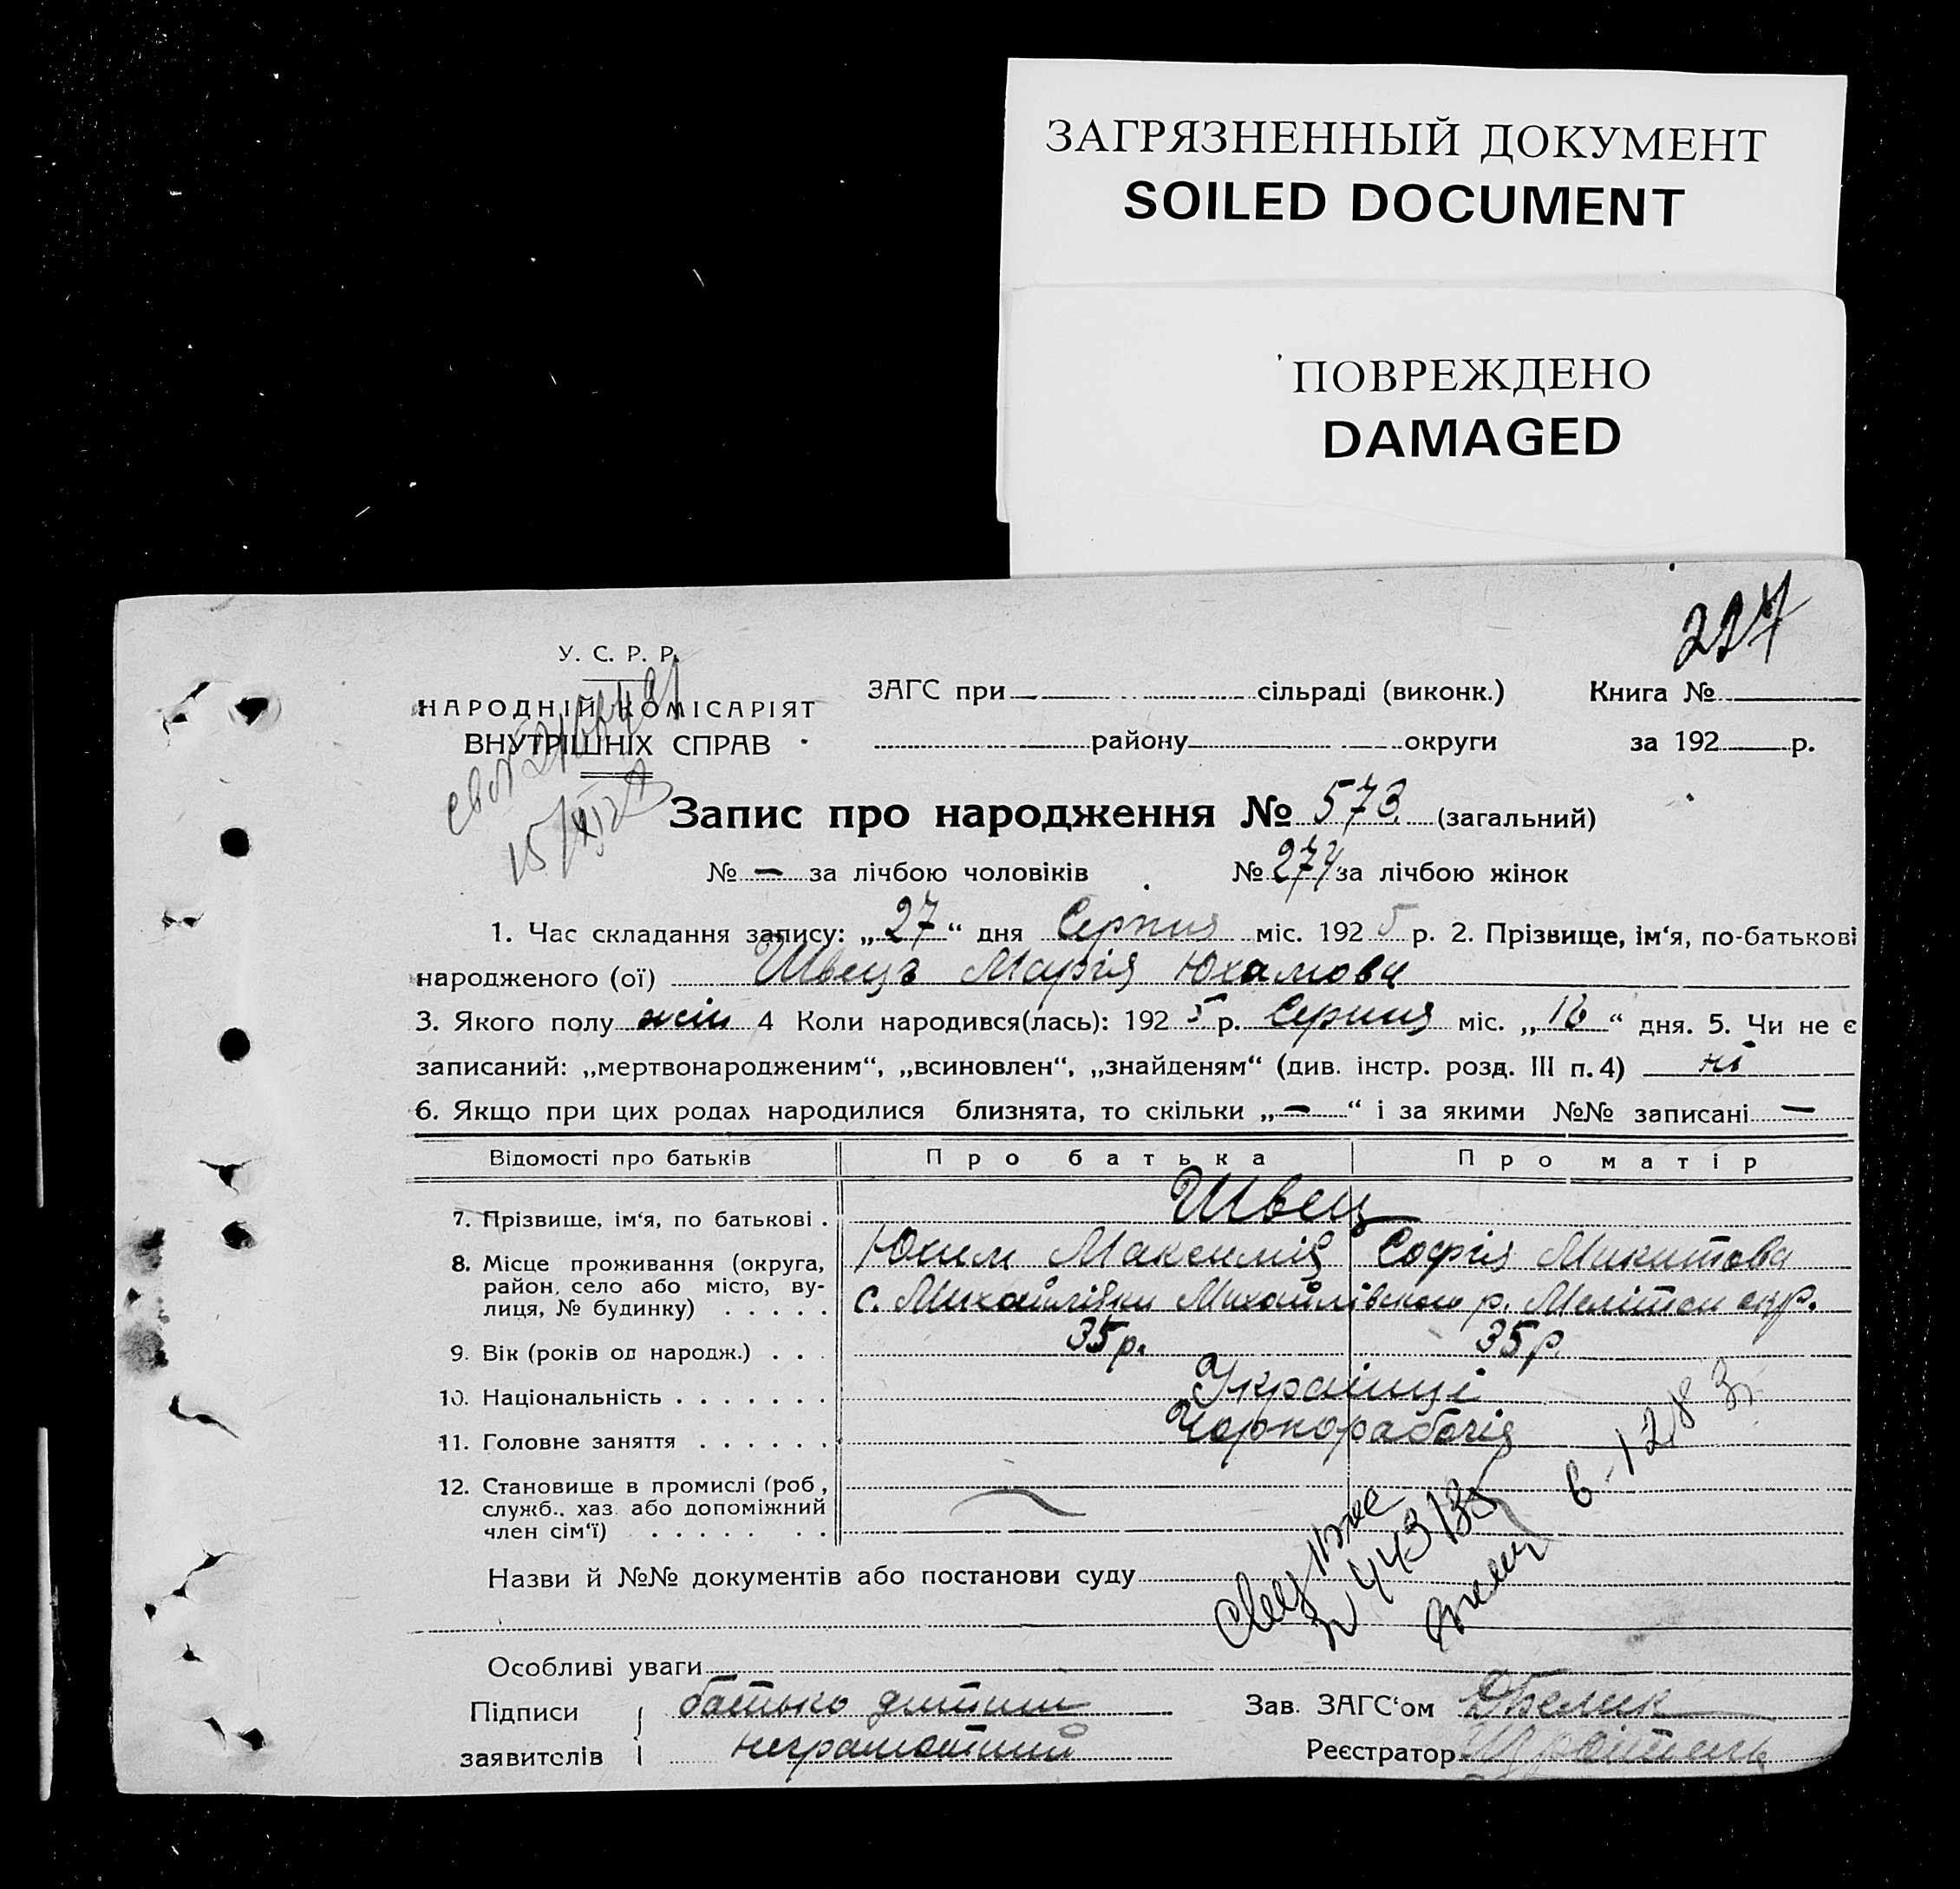 ЗАГРЯЗНЕННЫЙ ДОКУМЕНТ
SOILED DOCUMENT
ПОВРЕЖДЕНО
DAMAGED
227
У. С. Р. Р.
НАРОДНІЙ КОМІСАРІЯТ
ВНУТРІШНІХ СПРАВ
ЗАГС при сільраді (виконк.) Книга №
району округи за 192 р.
Запис про народження № 573 (загальний)
№ — за лічбою чоловіків № 274 за лічбою жінок
1. Час складання запису: „27“ дня Серпня міс. 1925 р. 2. Прізвище, ім‘я, по-батькові
народженого (ої) Швець Марія Юхимова
3. Якого полу жін 4 Коли народився(лась): 1925 р. Серпня міс. „16“ дня. 5. Чи не є
записаний: „мертвонародженим“, „всиновлен“, „знайденям“ (див. інстр. розд. III п. 4) ні
6. Якщо при цих родах народилися близнята, то скільки „—“ і за якими №№ записані —
Відомості про батьків Про батька Про матір
7. Прізвище, ім‘я, по батькові . Швец
Юхим Максимів Софія Микитова
8. Місце проживання (округа, район, село або місто, ву-
лиця, № будинку) . . . . . с. Михайлівки Михайлівського р. Меліτοп окр.
9. Вік (років од народж.) . . . 35 р. 35 р.
10. Національність . . . . . . . Українці
11. Головне заняття . . . . . . Чорнорабочія
12. Становище в промислі (роб.,
служб., хаз. або допоміжний
член сім‘ї) . . . . . . .
443135
Назви й №№ документів або постанови суду
Особливі уваги
Підписи батько дитини Зав. ЗАГС‘ом Белик
заявителів неграмотний Реєстратор